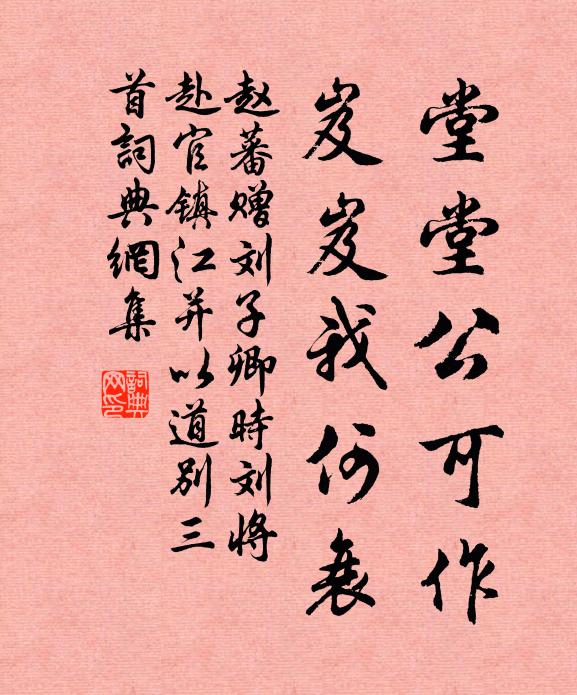 堂堂公可作
岌岌我何衰
赵蕃赠刘子卿時刘将
赴官镇江并以道别三
首詞典網集
詞典网印